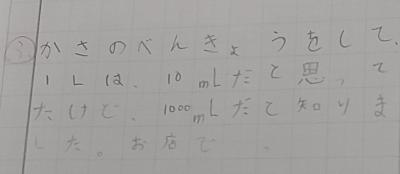 ③かさのべんきょうをして、
1Lは、10mLだと思って
たけど、1000mLだと知りま
した。お店で、